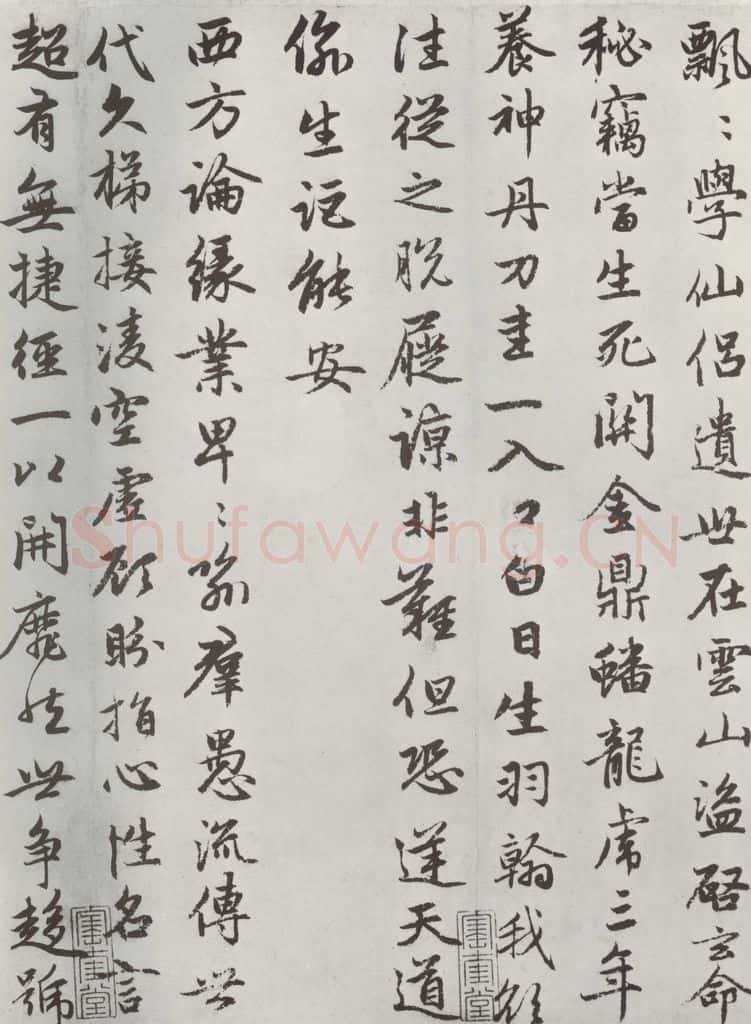 飄〻學仙侶遺世在雲山盜啓玄命
秘竊當生死關金鼎蟠龍虎三年
養神丹刀圭一入口白日生羽翰我欲
往從之脫屣諒非難但恐逆天道
偷生詎能安
西方論緣業卑〻喻羣愚流傳世
代久梯接凌空虛顧盼指心性名言
超有無捷徑一以開靡然世爭趨號
Shufawang.CN